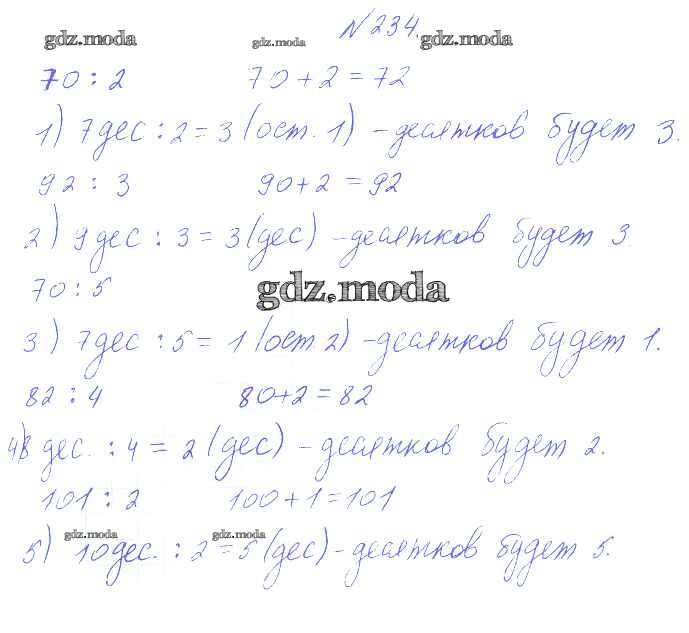 №234.
gdz.moda gdz.moda gdz.moda
70 : 2 70 + 2 = 72
1) 7дес : 2 = 3 (ост. 1) - десятков будет 3.
92 : 3 90 + 2 = 92
2) 9дес : 3 = 3 (дес) - десятков будет 3.
70 : 5 gdz.moda
3) 7дес : 5 = 1 (ост 2) - десятков будет 1.
82 : 4 80+2 = 82
4) 8 дес. : 4 = 2 (дес) - десятков будет 2.
101 : 2 100 + 1 = 101
gdz.moda gdz.moda
5) 10дес. : 2 = 5 (дес) - десятков будет 5.